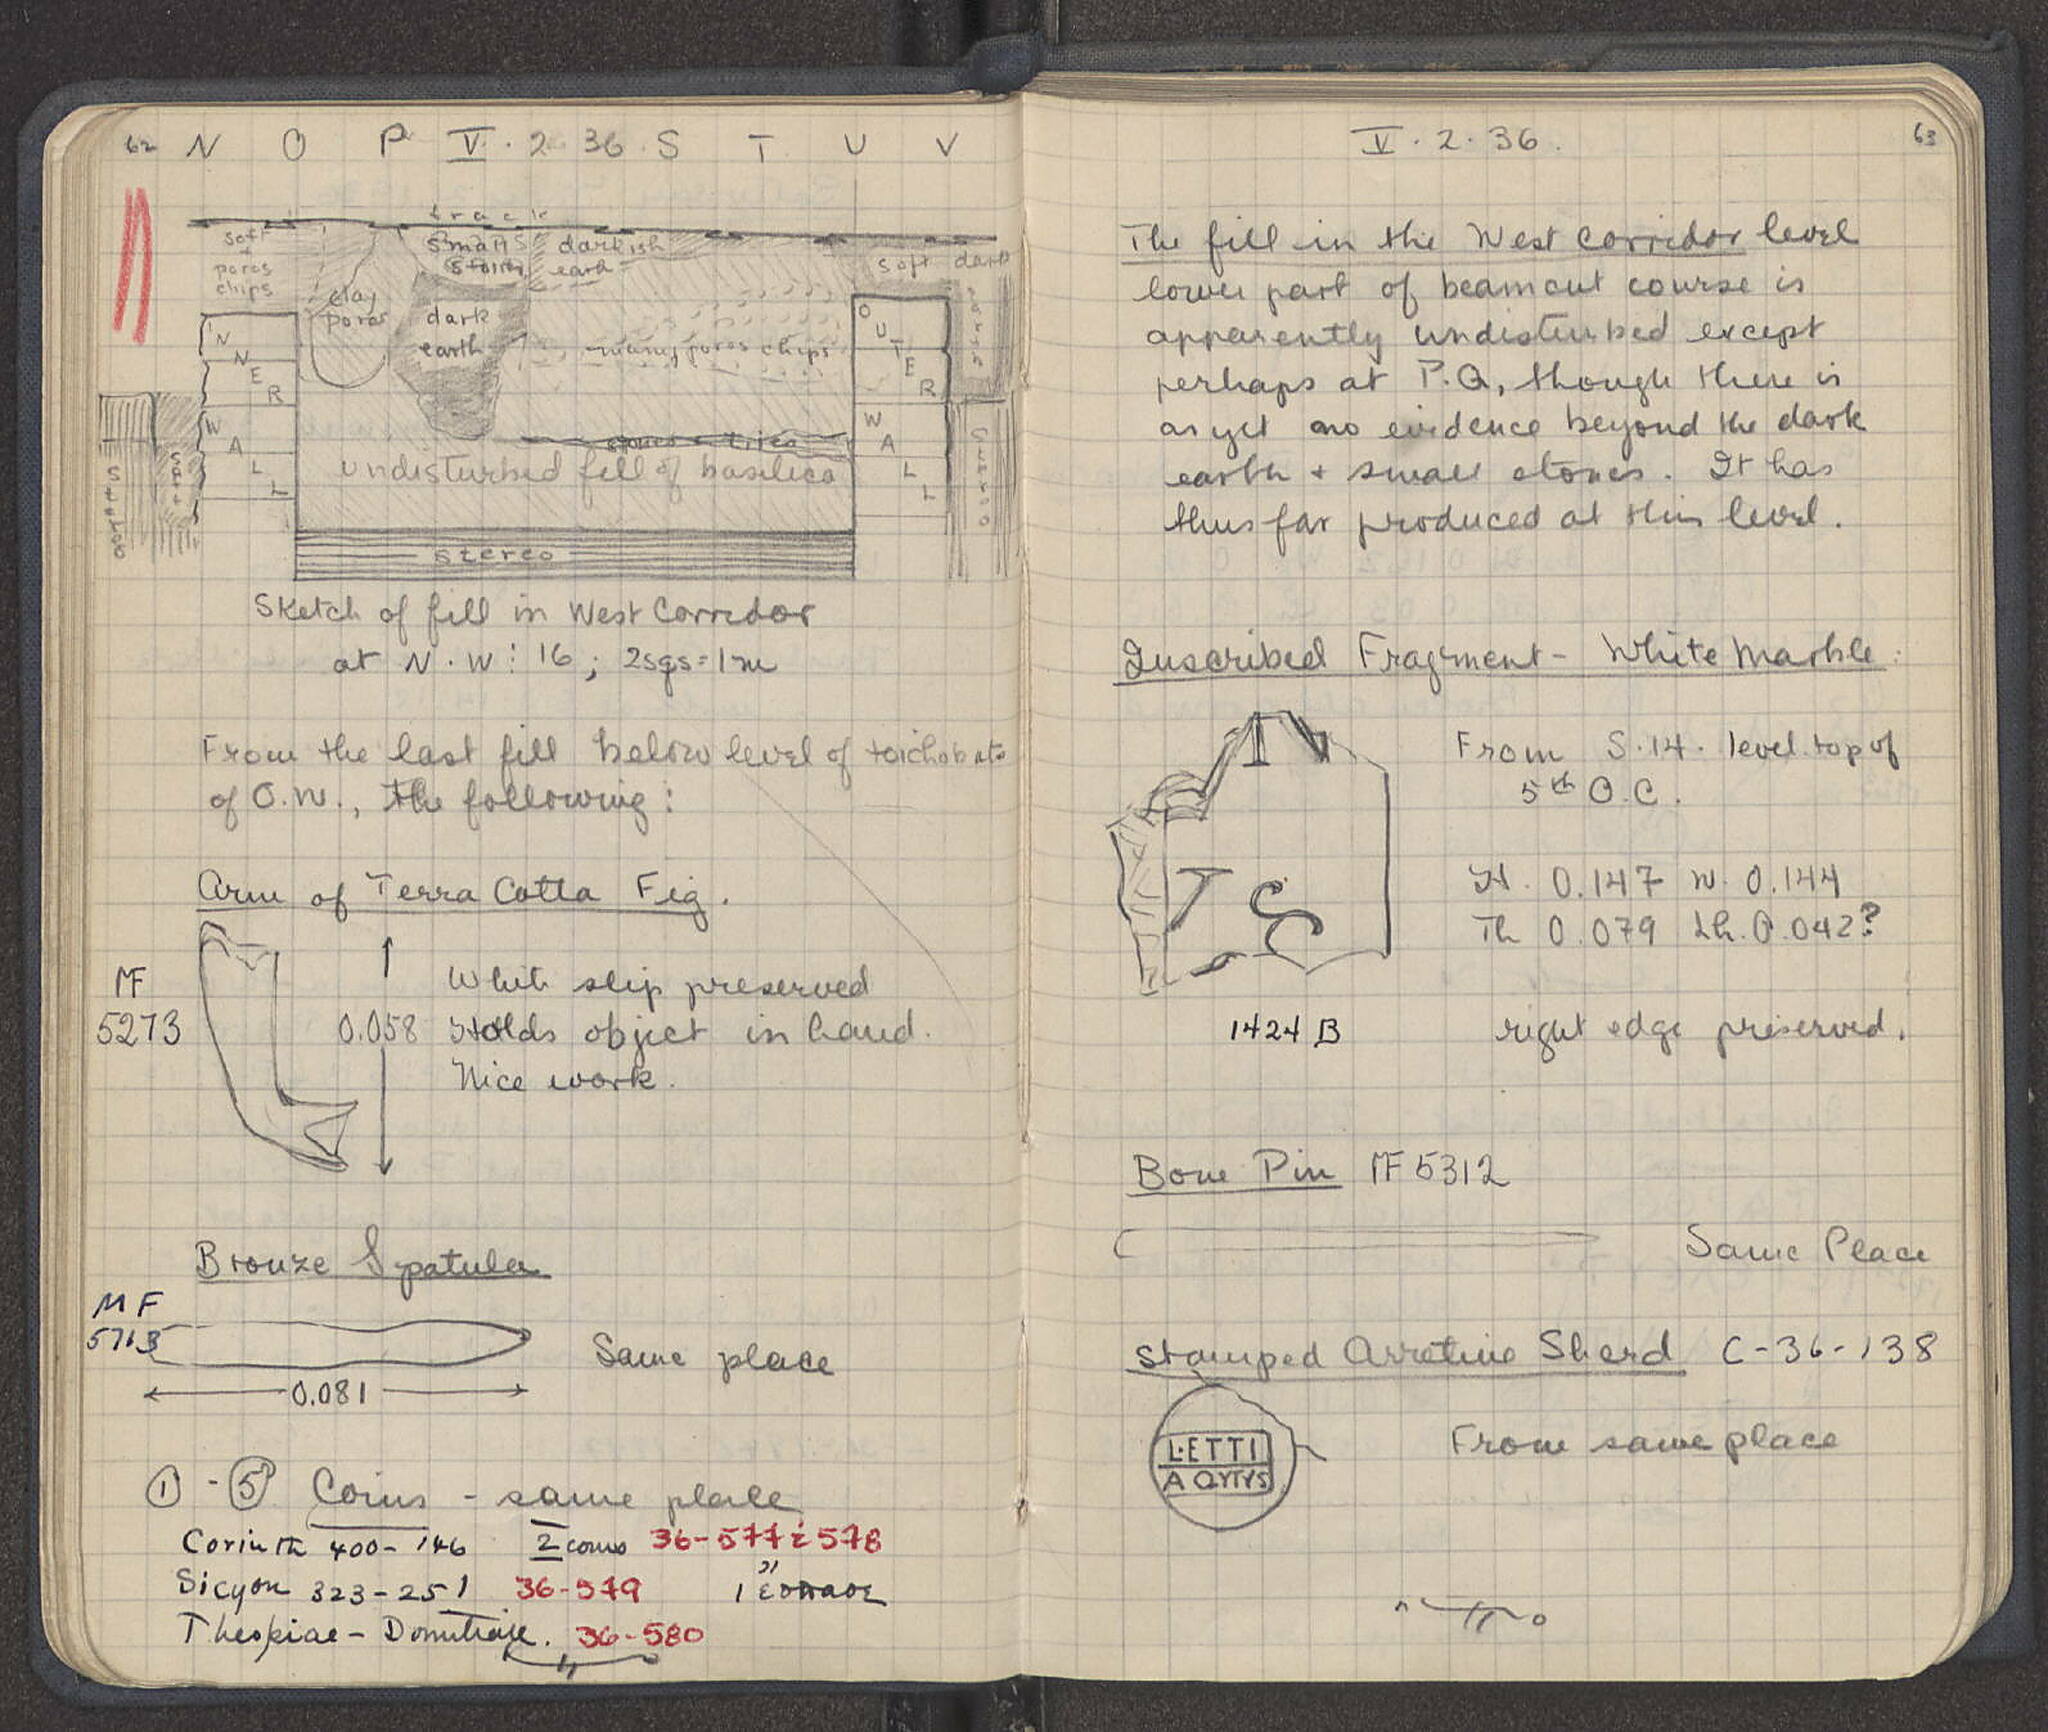 62 N O P V.2.36. S T U V
track
soft + poros chips
small stones
darkish earth
soft dark
clay poros
dark earth
many poros chips
INNER WALL
OUTER WALL
stereo
soft
stones + tiles
undisturbed fill of basilica
stereo
stereo
Sketch of fill in West Corridor
at N-W:16; 2sqs=1m
From the last fill below level of toichobate
of O.W., the following:
Arm of Terra Cotta Fig.
MF
5273
0.058
White slip preserved
Holds object in hand.
Nice work.
Bronze Spatula
MF
5713
Same place
0.081
① - ⑤ Coins - same place
Corinth 400-146 2 coins 36-577 & 578
Sicyon 323-251 36-579 1 "
Thespiae - Domitian. 36-580
V.2.36. 63
The fill in the West Corridor level
lower part of beamcut course is
apparently undisturbed except
perhaps at P.Q, though there is
as yet no evidence beyond the dark
earth + small stones. It has
thus far produced at this level.
Inscribed Fragment - White Marble:
From S.14. level top of
5th O.C.
Ht. 0.147 W. 0.144
Th 0.079 Lh. 0.042?
1424 B
right edge preserved.
Bone Pin MF 5312
Same Place
Stamped Arretine Sherd C-36-138
L·ETTI
A QVTVS
From same place